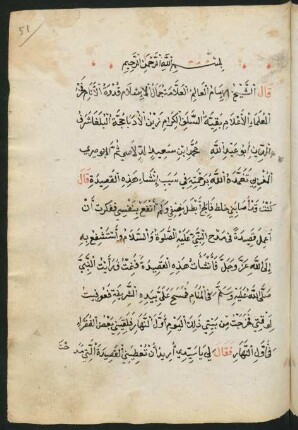 51
بسم الله الرحمن الرحيم
قال الشيخ الإمام العالم العلامة جمال الإسلام قدوة الأنام فخر
العلماء الأعلام بقية السلف الكرام زين الأدباء حجة البلغاء شرف
الدين أبو عبد الله محمد بن سعيد الدلاصي ثم البوصيري
المغربي تغمده الله برحمته في سبب إنشاء هذه القصيدة قال
كنت قد أصابني خلط فالج أبطل نصفي ولم أنتفع بنفسي ففكرت أن
أعمل قصيدة في مدح النبي عليه الصلوة والسلام وأستشفع به
إلى الله عز وجل فأنشأت هذه القصيدة فنمت فرأيت النبي
صلى الله عليه وسلم في المنام فمسح علي بيده الشريفة فعوفيت
لوقتي فخرجت من بيتي ذلك اليوم أول النهار فلقيني بعض الفقراء
في أول النهار فقال لي يا سيدي أريد أن تعطيني القصيدة التي مدحت